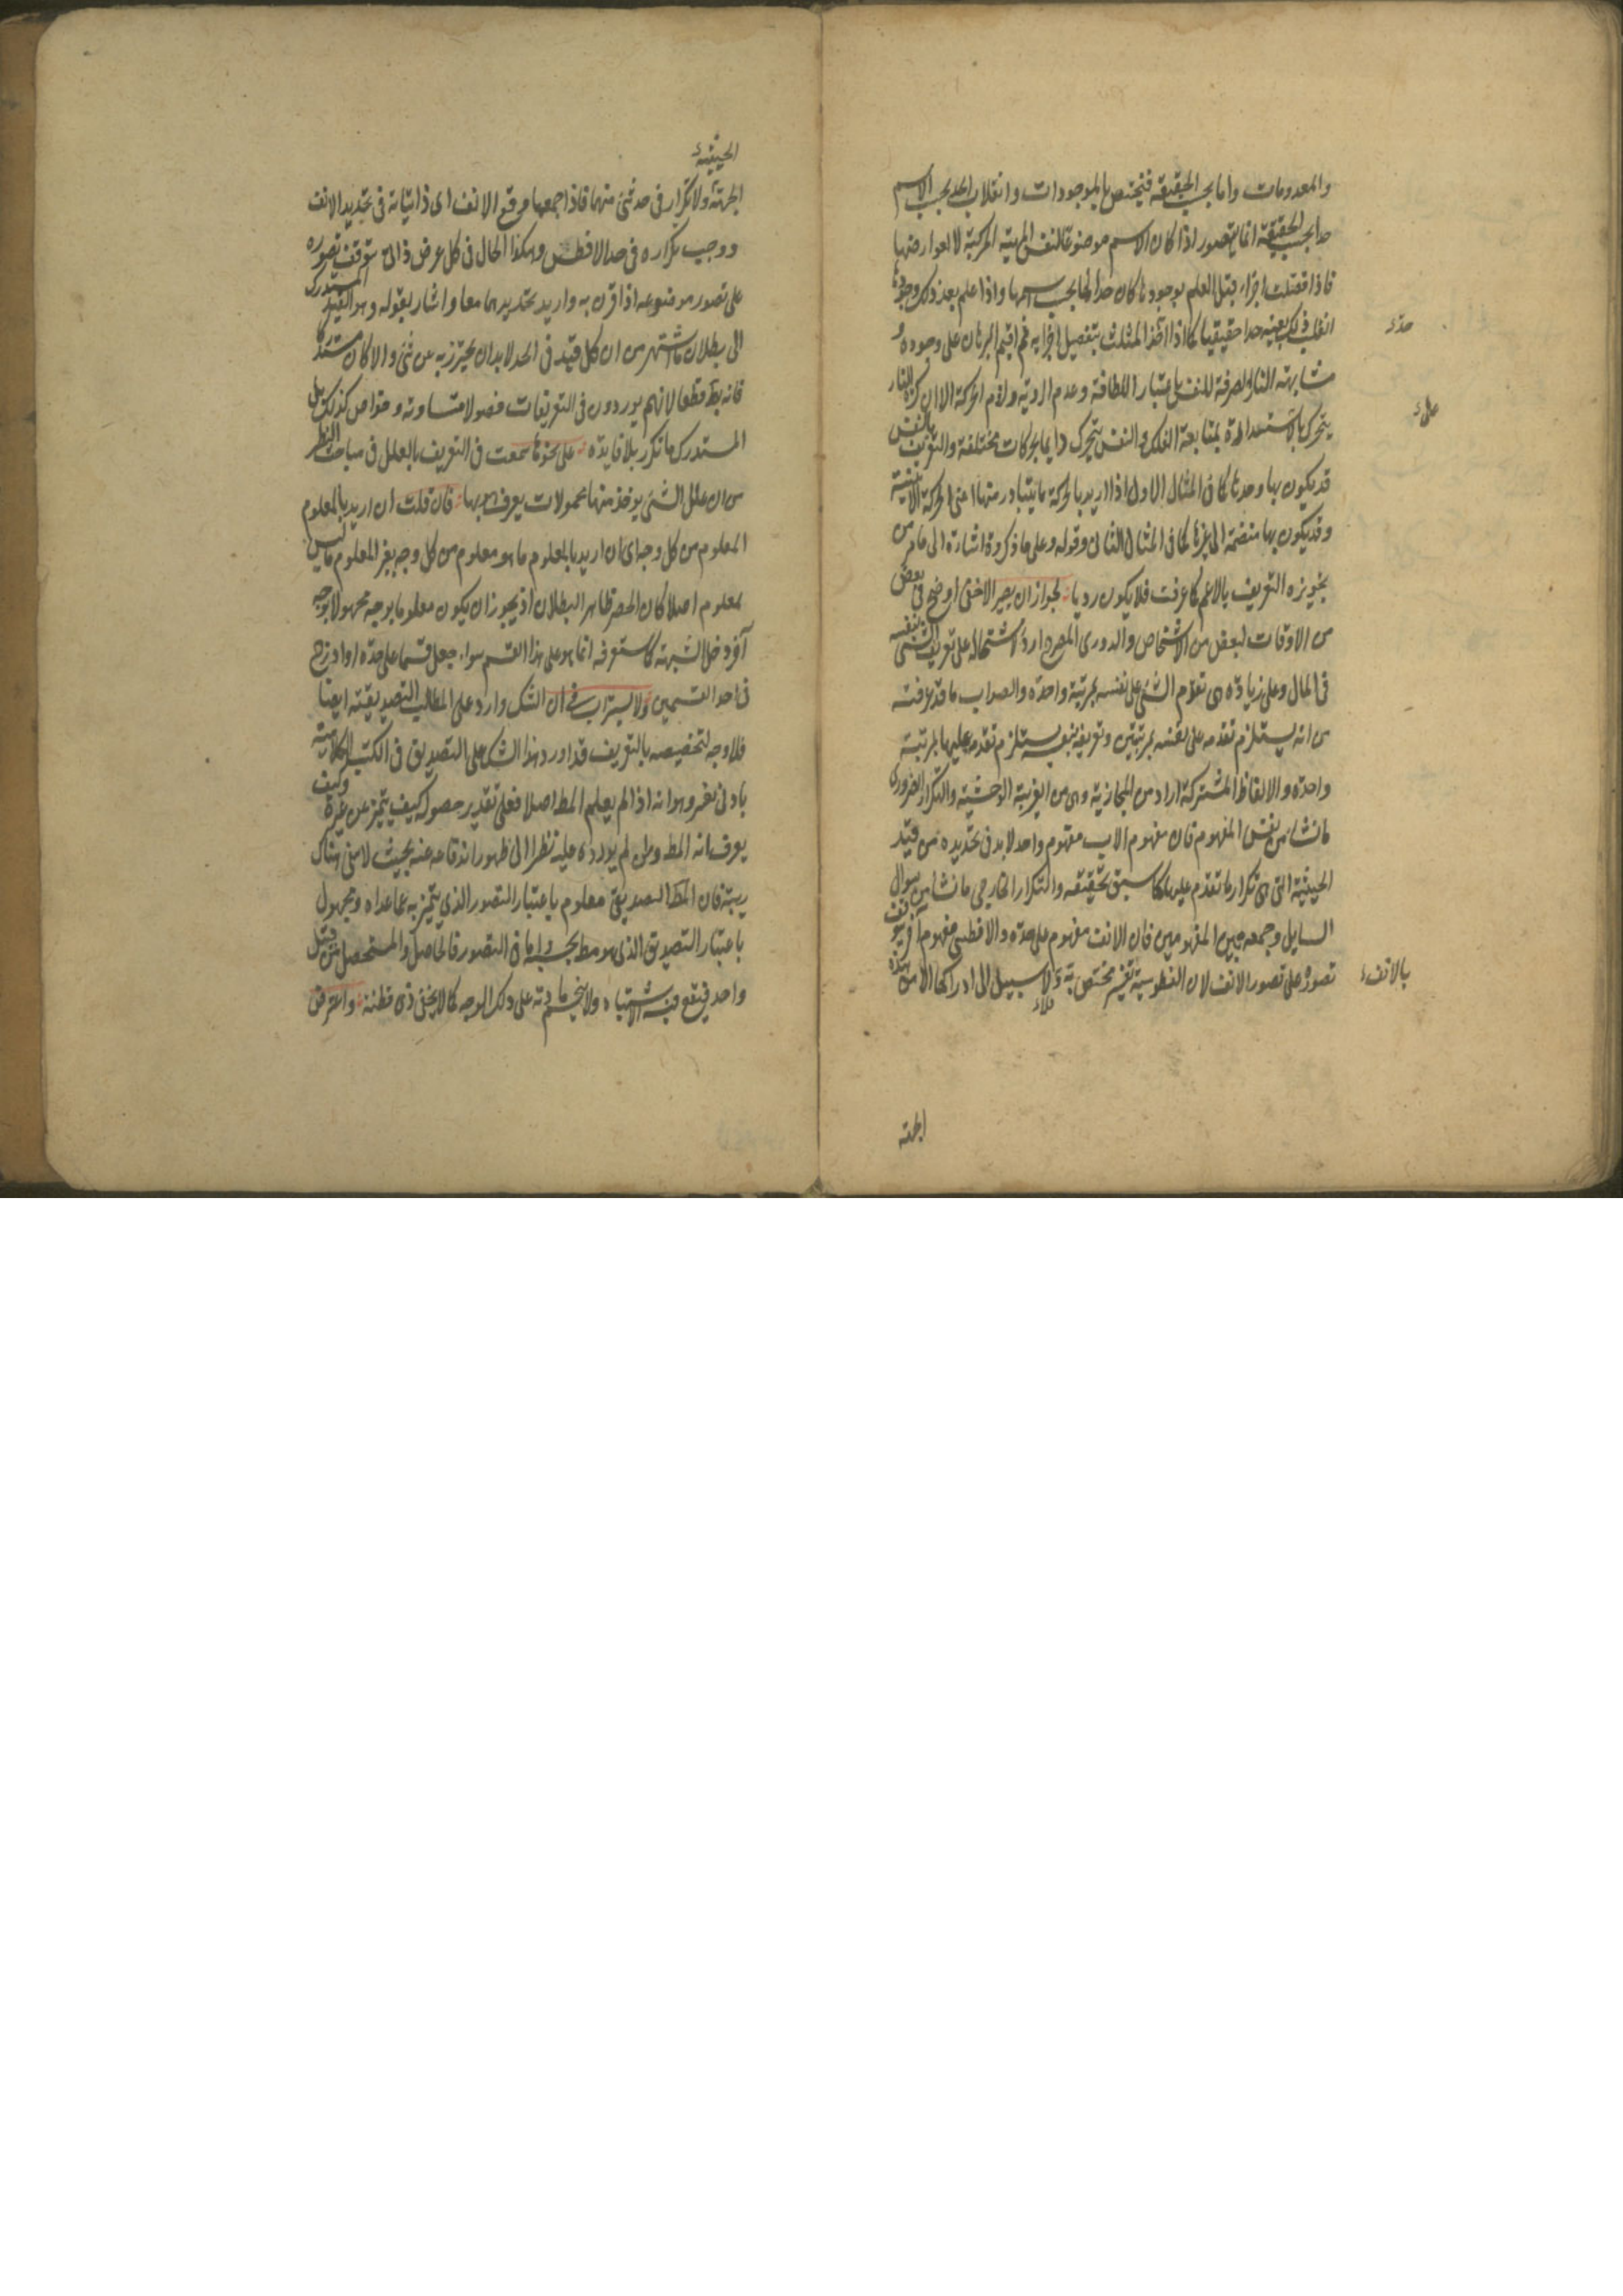 والمعدومات واما بحسب الحقيقة فيختص بالموجودات وانقلاب الحد بحسب الاسم
حدا بحسب الحقيقة انما يتصور اذا كان الاسم موضوعا لنفس المهية المركبة لا لعوارضها
فاذا فصلت اجزاء قبل العلم بوجودها كان حدا لها بحسب اسمها واذا علم بعد ذلك وجودها
انقلب ذلك بعينه حدا حقيقيا كما اذا اخذ المثلث بتفصيل اجزايه ثم اقيم البرهان على وجوده و
حده
مشابهته النار الصرفة للنفس باعتبار اللطافة وعدم الروية ولزم الحركة الا ان كرة النار
يتحرك بالاستدارة بمتابعة الفلك والنفس يتحرك دايما بحركات مختلفة والتعريف بالنفس
على
قد يكون بها وحدها كما في المثال الاول اذا اريد بالحركة ما يتبادر منها اعني الحركة الاينية
وقد يكون بها منضمة الى غيرها كما في المثال الثاني وقوله وعلى ما ذكروه اشارة الى ما مر من
تجويزه التعريف بالاعم كما عرفت فلا يكون رديا لجواز ان يصير الاخفى اوضح في بعض
من الاوقات لبعض من الاشخاص والدوري المصرح اردأ لاشتماله على تعريف الشئ بنفسه
في المال وعلى زيادة هي تقدم الشئ على نفسه بمرتبة واحدة والصواب ما قد عرفت
من انه يستلزم تقدمه على نفسه بمرتبتين وتعريفه بنفسه يستلزم تقدمه عليها بمرتبة
واحدة والالفاظ المشتركة اراد من المجازية وهي من الغريبة الوحشية والتكرار الضروري
ما نشا من نفس المفهوم فان مفهوم الاب مفهوم واحد لا بد في تحديده من قيد
الحيثية التي هي تكرار ما تقدم عليها كما سبق تحقيقه والتكرار الخارجي ما نشا من سوال
السايل وجمعه بين المفهومين فان الانف مفهوم على حده والافطس مفهوم آخر يتوقف
تصوره على تصور الانف لان الفطوسة تقعير مختص به فلا سبيل الى ادراكها الا من هذه
بالانف
الجهة
الحيثية
الجهة ولا تكرار في حد شئ منهما فاذا جمعها مرقع الانف اي ذاتياته في تحديد الانف
ووجب تكراره في حد الافطس وهكذا الحال في كل عرض ذاتي يتوقف تصوره
على تصور موضوعه اذا قرن به واريد تحديدهما معا واشار بقوله وهو القيد المستدرك
الى بطلان ما اشتهر من ان كل قيد في الحد لا بد ان يحترز به عن شئ والا كان مستدركا
فانه بط قطعا لانهم يوردون في التعريفات فصولا متساوية وخواص كذلك بل
المستدرك ما تكرر بلا فايدة على نحو ما سمعت في التعريف بالعلل في مباحث النظر
من ان علل الشئ يوخذ منها محمولات يعرف هو بها فان قلت ان اريد بالمعلوم
المعلوم من كل وجه اي ان اريد بالمعلوم ما هو معلوم من كل وجه بغير المعلوم ما ليس
بمعلوم اصلا كان الحصر ظاهر البطلان اذ يجوز ان يكون معلوما بوجه مجهولا بوجه
آخر وحل الشبهة كما ستعرفه انما هو على هذا القسم سواء جعل قسما على حده او ادرج
في احد القسمين ولا يستراب في ان الشك وارد على المطالب التصديقية ايضا
فلا وجه لتخصيصه بالتعريف قد اورد هذا الشك على التصديق في الكتب الكلامية
بادنى تغير وهو انه اذا لم يعلم المط اصلا فعلى تقدير حصوله كيف يتميز عن غيره وكيف
يعرف انه المط ومن لم يورده عليه نظرا الى ظهور اندفاعه عنه بحيث لا يبقى هناك
ريبة فان المط التصديقي معلوم باعتبار التصور الذي يتميز به عما عداه ومجهول
باعتبار التصديق الذي هو مط بحسبه واما في التصور فالحاصل والمستحصل من قبيل
واحد فيقع فيه اشتباه ولا ينحسم مادته على ذلك الوجه كما لا يخفى ذي فطنة واعترض